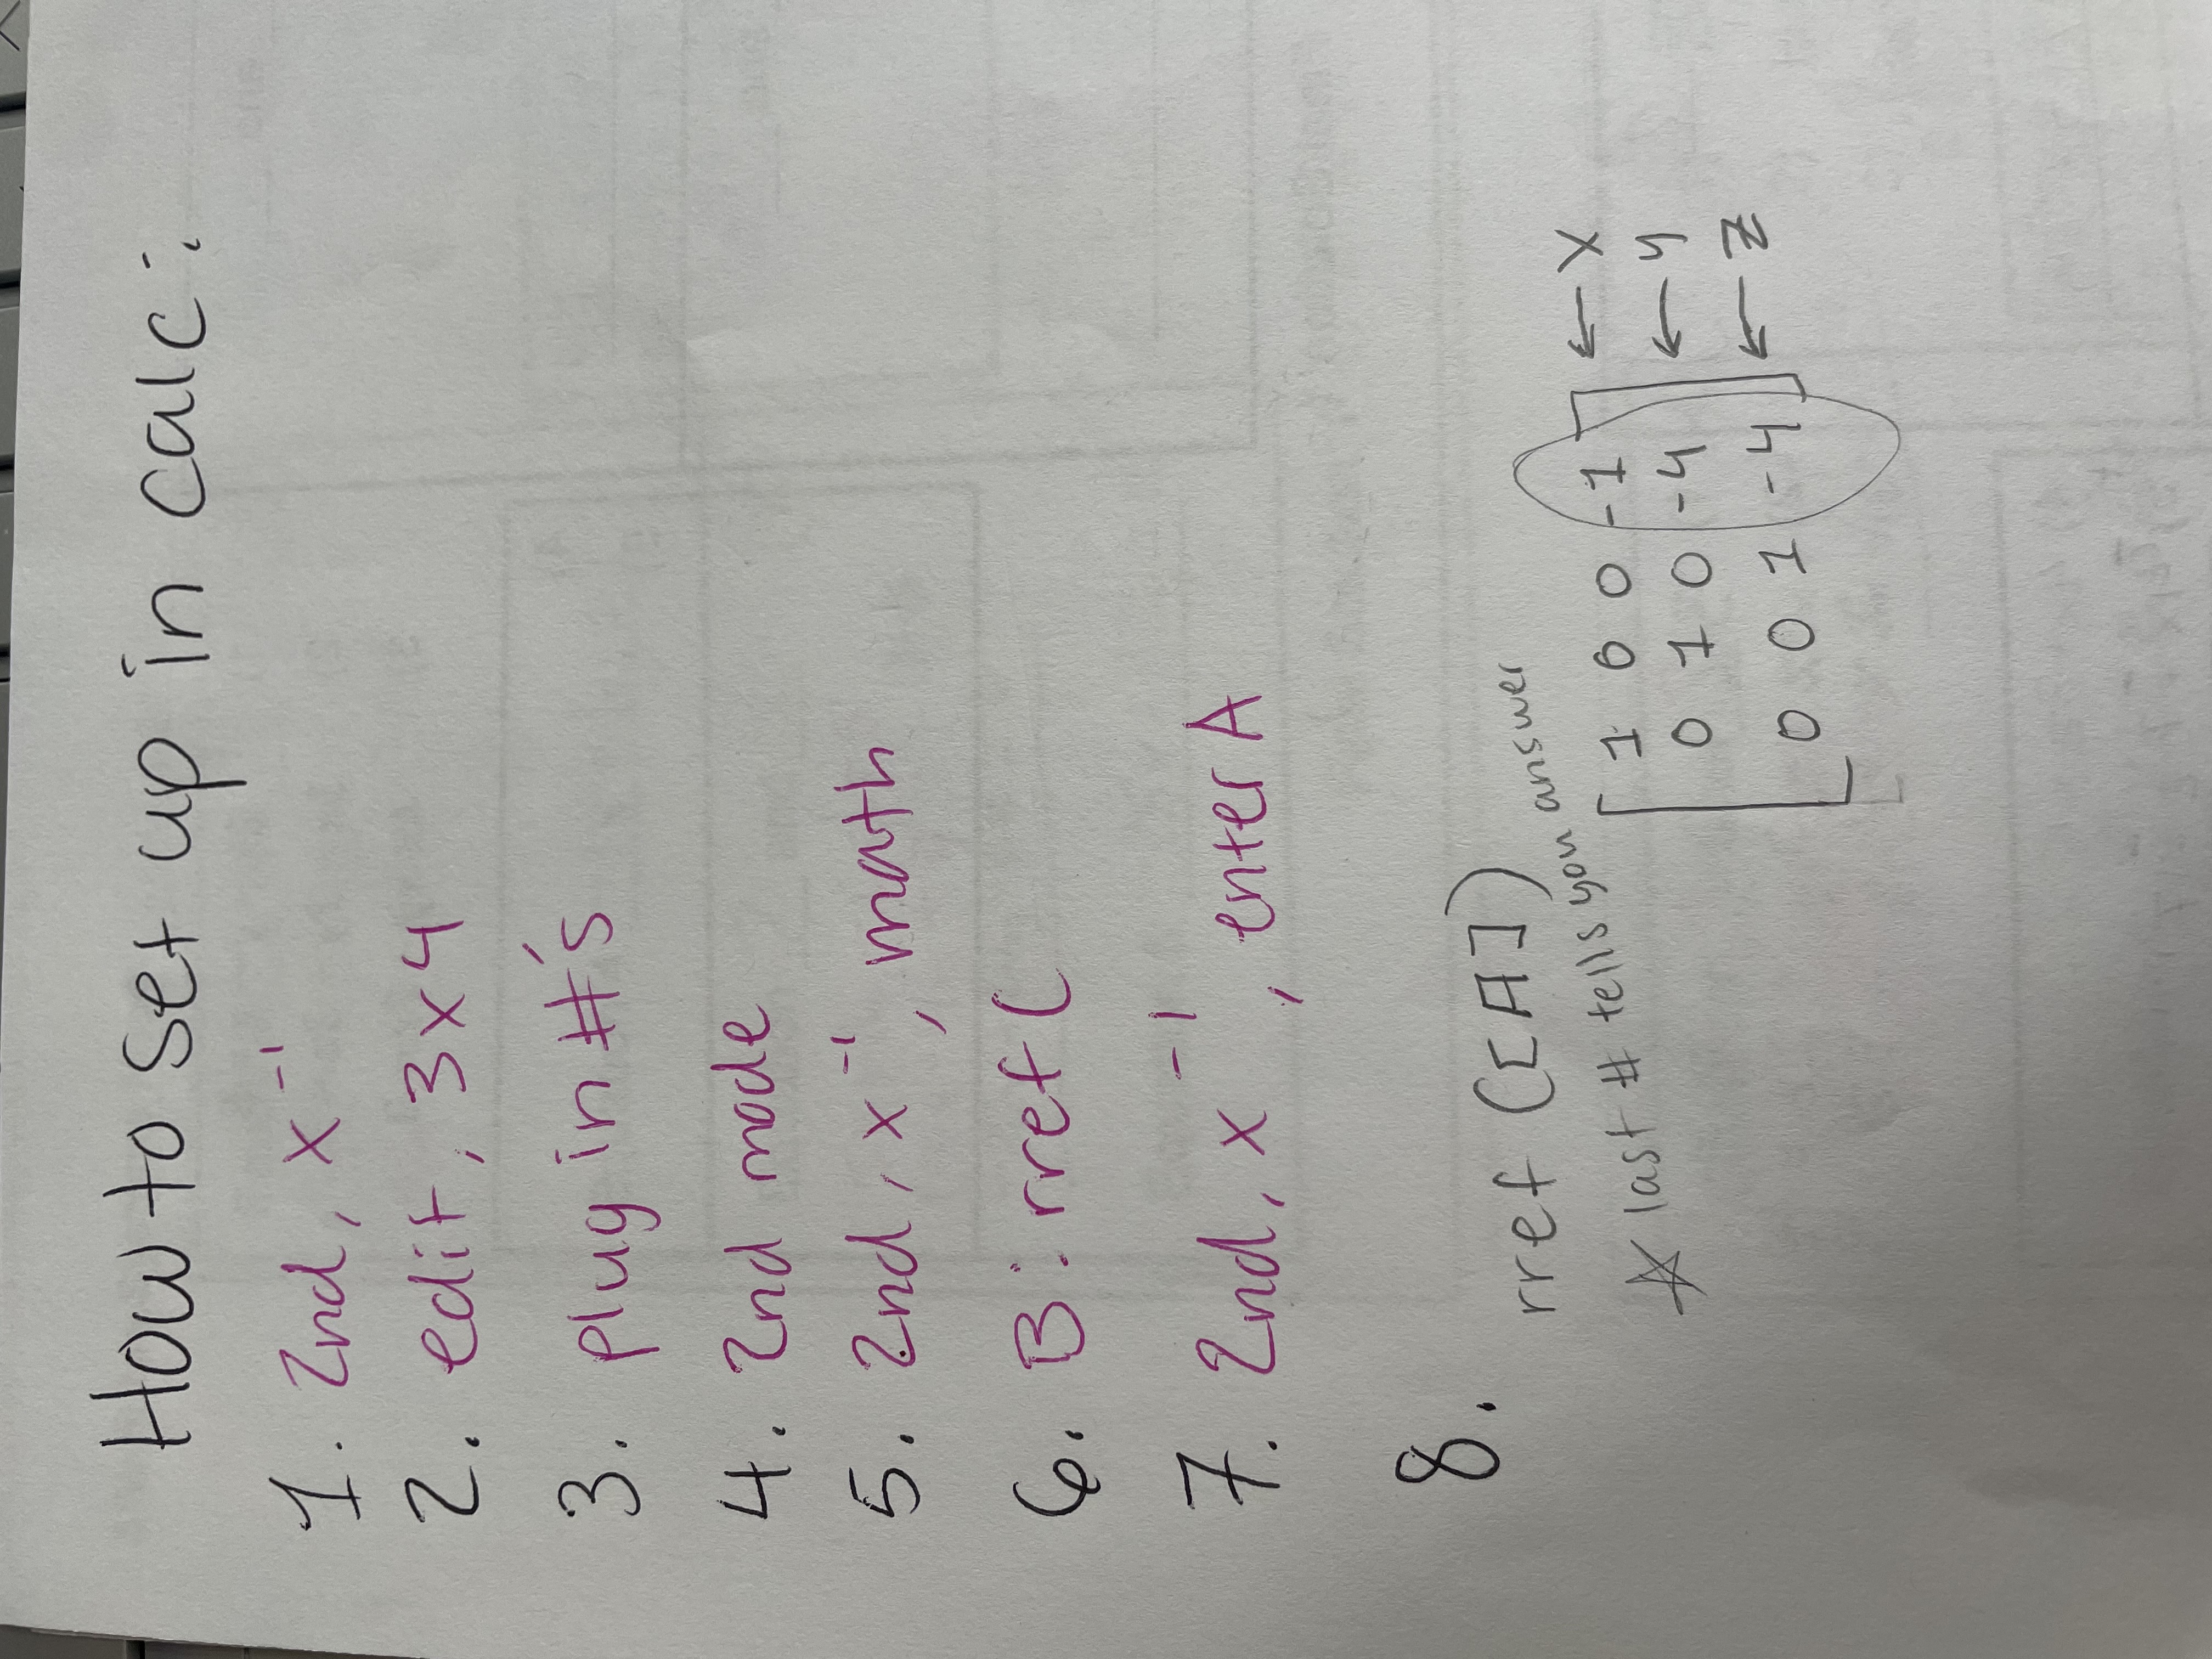 How to set up in calc:
1. 2nd, x⁻¹
2. edit, 3x4
3. plug in #'s
4. 2nd mode
5. 2nd, x⁻¹, math
6. B: rref(
7. 2nd, x⁻¹, enter A
8. rref ([A])
☆ last # tells you answer
[1 0 0 -1] ← x
[0 1 0 -4] ← y
[0 0 1 -4] ← z